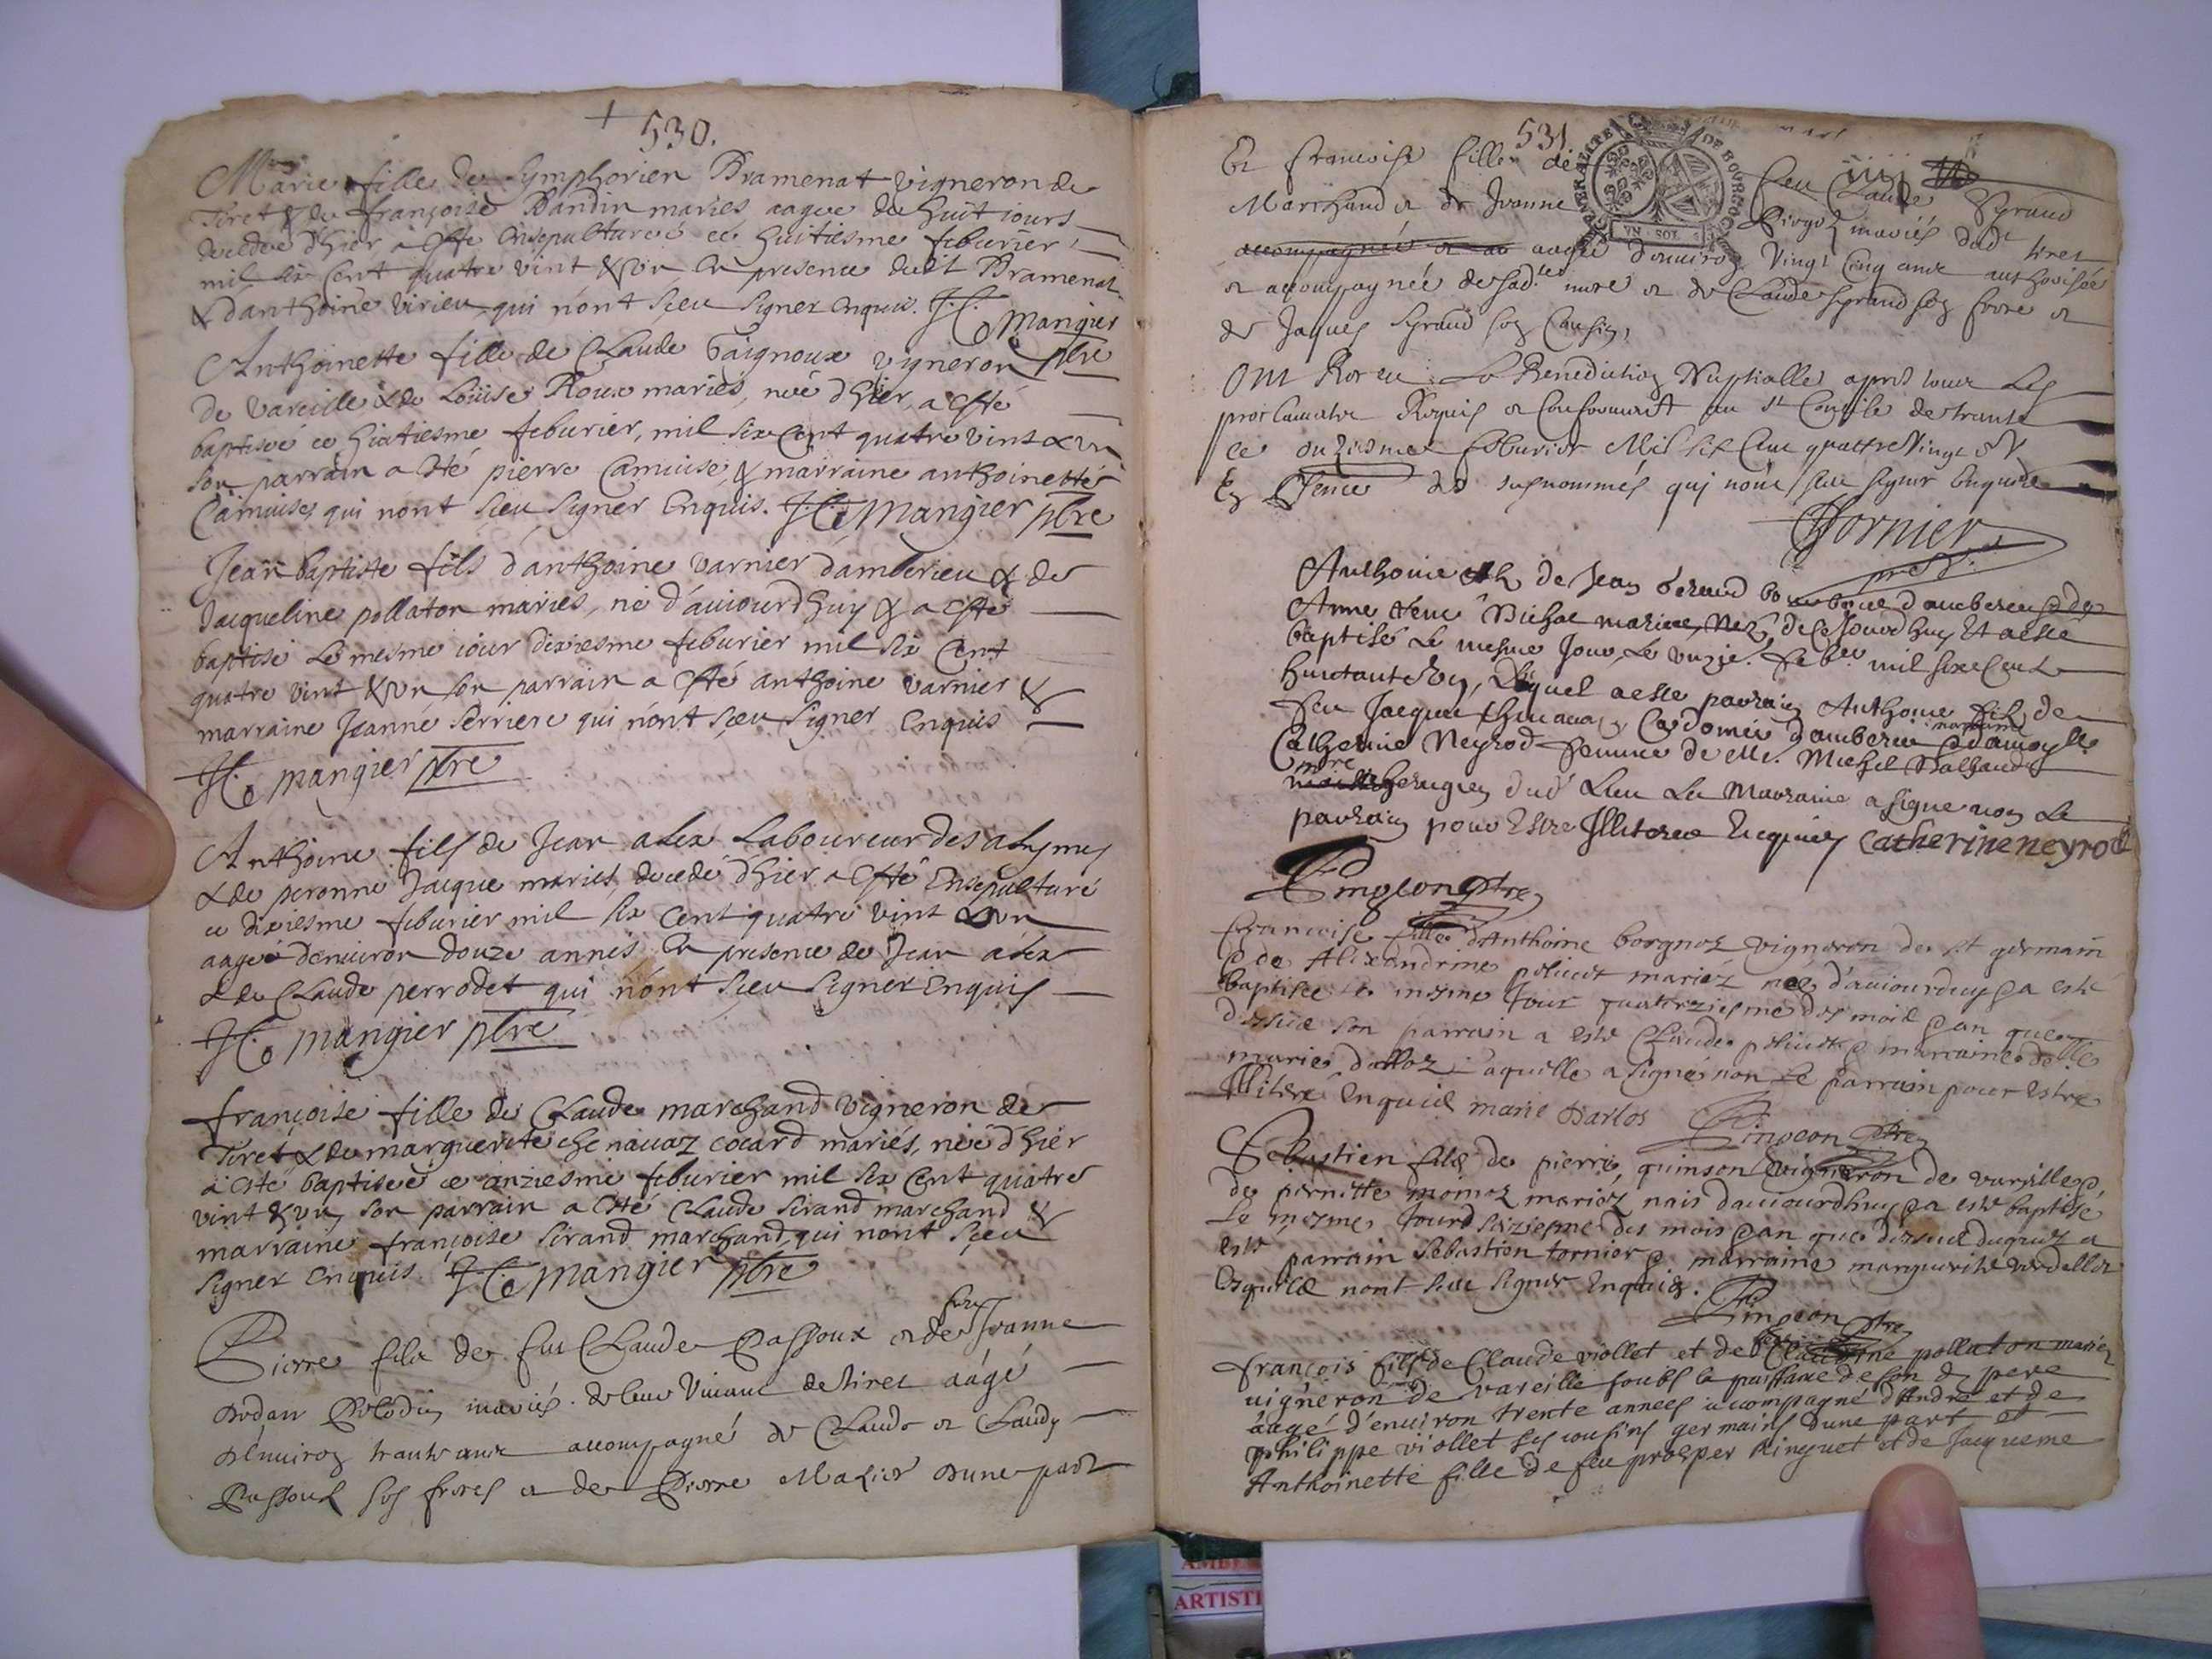 530.
Marie fille de Symphorien Bramenat vigneron de
Tiret & de françoise Bandin mariés aagee de huit iours
decedée d'hier, a esté ensepulturée ce huitiesme feburier
mil six cent quatre vint & un en presence dudit Bramenat
& d'anthoine virieu qui n'ont sceu signer enquis. J. C. Mangier
ptre
Anthoinette fille de Claude Gaignoux vigneron
de vareille & de Loüise Roux mariés, née d'hier, a esté
baptisée ce huitiesme feburier, mil six cent quatre vint & un
son parrain a esté pierre Camuise, & marraine anthoinette
Camuise, qui n'ont sceu signer enquis. J. C. Mangier ptre
Jean baptiste fils d'anthoine varnier d'amberieu & de
Jacqueline pollaton mariés, né d'auiourdhuy & a esté
baptisé le mesme iour dixiesme feburier mil six cent
quatre vint & un son parrain a esté anthoine varnier &
marraine Jeanne serriere qui n'ont sceu signer enquis
J. C. mangier ptre
Anthoine fils de Jean alex Laboureur des alymes
& de peronne Jacque mariés, decedé d'hier a esté ensepulturé
ce dixiesme feburier mil six cent quatre vint & un
aagé d'enuiron douze annés en presence de Jean alex
& de Claude perrodet qui n'ont sceu signer enquis
J. C. mangier ptre
françoise fille de Claude marchand vigneron de
Tiret & de marguerite chenauaz cocard mariés, née d'hier
a esté baptisée ce onziesme feburier mil six cent quatre
vint & un, son parrain a esté Claude sirand marchand &
marraine françoise sirand marchand, qui n'ont sceu
signer enquis. J. C. mangier ptre
Pierre fils de feu Claude Passoux et de feue Jeanne
mariés de leur viuant de tiret aagé
d'enuiron trante ans accompagné de Claude et Claudy
Passoux ses freres et de Pierre d'une part
531
Et francoise fille de feu Claude Syrand
Marchand et de Jeanne mariés dud. tiret
aagée d'enuiron vingt cinq ans authorisée
et accompagnée de sad.te mere et de Claude Syrand son frere et
de Jaques Syrand son Cousin,
Ont Receu La Benediction Nuptialle apres tous les
proclamats Requis et Conformement au St Concile de trante
ce onziesme feburier Mil six Cent quattre vingt et un
En presence des susnommés qui n'ont sceu signer enquis
Tornier
prest.
Anthoine fils de Jean d'amberieu & de
Anne mariez, Né de ce Jourdhuy Et a esté
baptisé Le mesme Jour, Le unzie. feber mil six cent
huictante Un, Duquel a esté parrain Anthoine fils de
feu Jacque Cordonier d'amberieu & marraine damoyselle
Catherine Neyrod femme de Me. Michel
mre dud Lieu La Marraine a signé non Le
parrain pour Estre Illiteré Enquis Catherine neyrod
Pingeon ptre
françoise fille d'Anthoine borgnoz vigneron de st germain
& de Alexandrine mariez née d'auiourdhuy & a esté
baptisée le mesme Jour quatorziesme des mois & an que
dessus son parrain a esté Claude & marraine delle
marie Laquelle a signé non Le parrain pour estre
Illiteré Enquis marie Darlos Pingeon ptre
Sebastien fils de pierre quinson vigneron de vareille &
de pernette moinoz mariéz nais dauiourdhuy & a esté baptisé
Le mesme Jour seziesme des mois & an que dessus duquel a
esté parrain sebastien tornier & marraine marguerite verdellet
Lesquels nont sceu signer Enquis.
Pingeon ptre
françois fils de Claude viollet et de pollaton mariez
uigneron de vareille soubs la puissance de son d. pere
aagé d'enuiron trente annees accompagné d'André et de
philippe viollet ses cousins germains d'une part et
Anthoinette fille de feu prosper Ringuet et de Jacqueme
GENERALITE DE BOURGOGNE
UN SOL
AMBE
ARTISTI